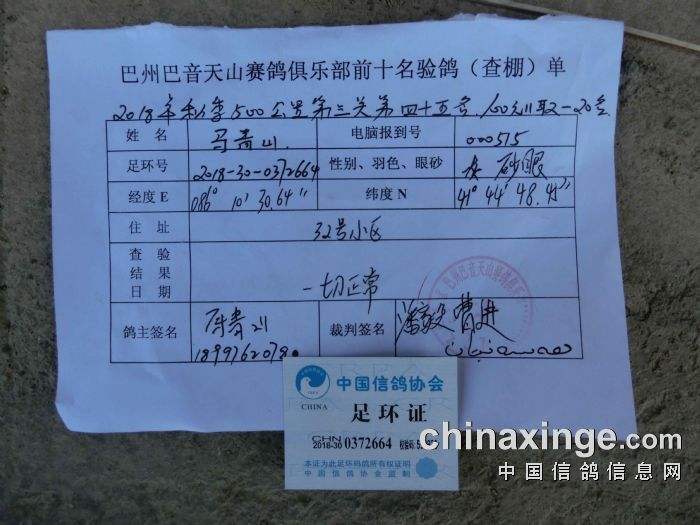 巴州巴音天山赛鸽俱乐部前十名验鸽（查棚）单
2018年秋季500公里第三关第四十五号
姓 名 马青山 电脑报到号 000515
足环号 2018-30-0372664 性别、羽色、眼砂 灰 砂眼
经度E 086° 10′ 30.64″ 纬度N 41° 44′ 48.45″
住 址 32号小区
查 验 结 果 日 期 一切正常
鸽主签名 裁判签名 曹进
中国信鸽协会
CHINA
足环证
CHN
2018-30 0372664
本证为此足环码鸽所有权证明
中国信鸽协会监制
chinaxinge.com
中国信鸽信息网